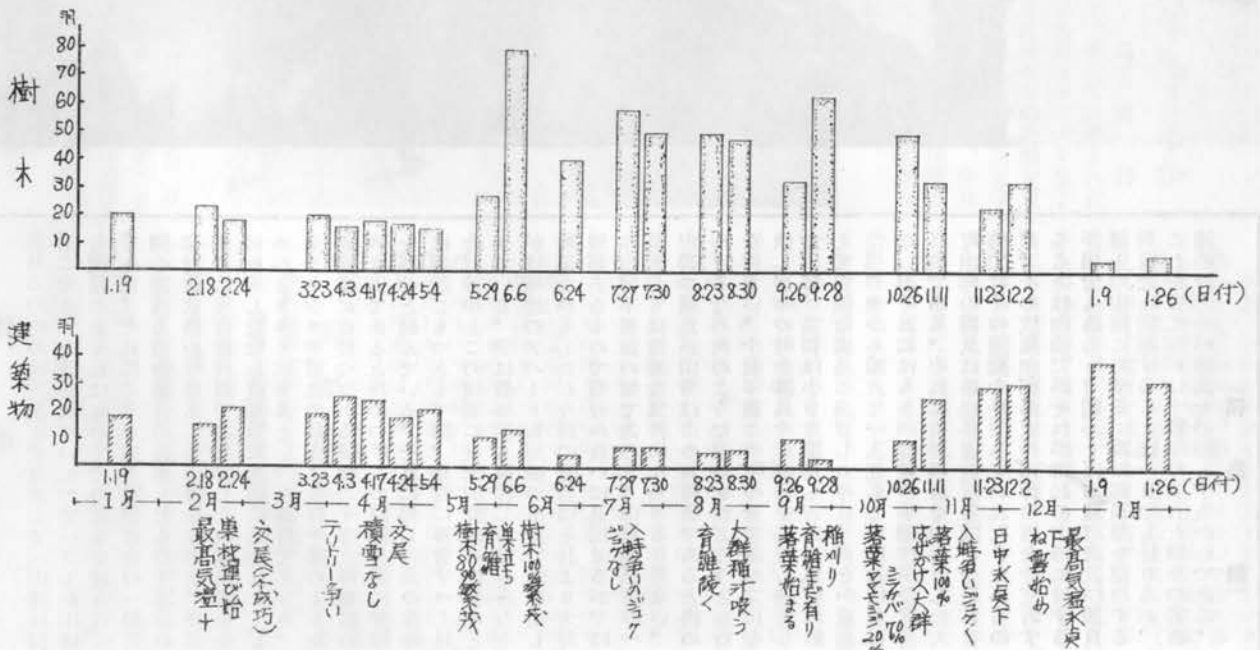 樹木
羽
80
70
60
50
40
30
20
10
1.19 2.18 2.24 3.23 4.3 4.17 4.24 5.4 5.29 6.6 6.24 7.27 7.30 8.23 8.30 9.26 9.28 10.26 11.11 11.23 12.2 1.9 1.26 (日付)
建築物
羽
40
30
20
10
1.19 2.18 2.24 3.23 4.3 4.17 4.24 5.4 5.29 6.6 6.24 7.27 7.30 8.23 8.30 9.26 9.28 10.26 11.11 11.23 12.2 1.9 1.26 (日付)
1月 2月 3月 4月 5月 6月 7月 8月 9月 10月 11月 12月 1月
最高気温+
巣材運び始
交尾(不成功)
テリトリー争い
積雪なし
交尾
樹木80%繁茂
育雛
巣立ち
樹木100%繁茂
入時争い
なし
育雛続く
大群稲汁吸う
落葉始まる
育雛まだ有り
稲刈り
落葉
20%
70%
はせかけ大群
落葉100%
日中氷点下
ね雪始め
最高気温氷点下